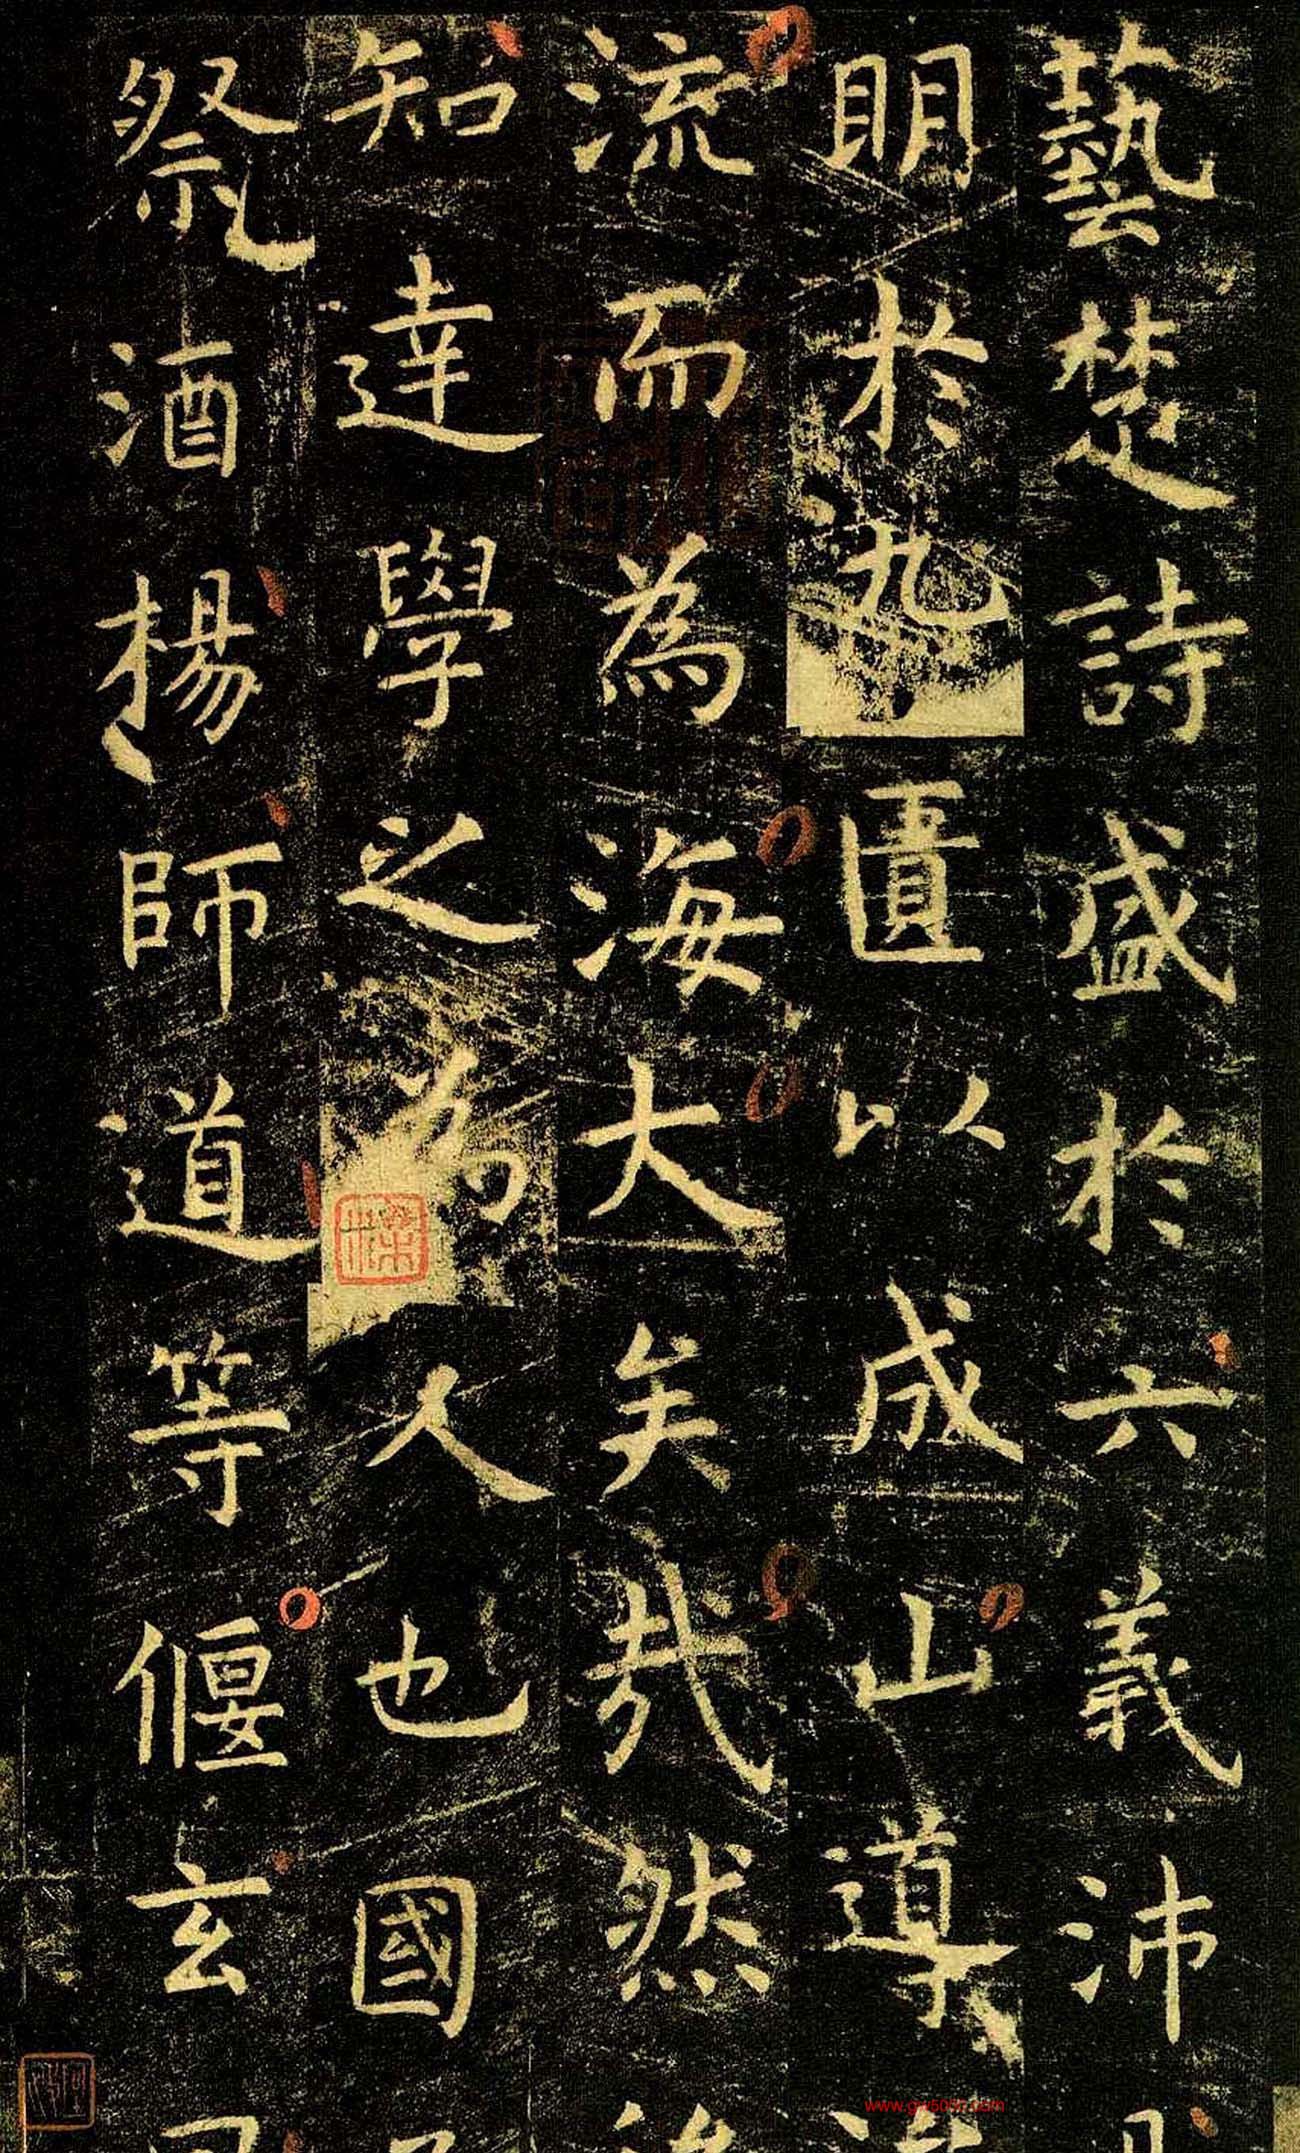 藝楚詩盛於六義沛
明於九匱以成山導
流而為海大矣哉然後
知達學之為人也國
祭酒楊師道等偃玄